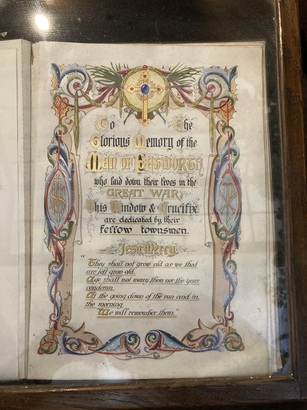 To The
Glorious Memory of the
Men of
who laid down their lives in the
GREAT WAR.
This Window & Crucifix
are dedicated by their
fellow townsmen.
Jesu Mercy.
"They shall not grow old as we that
are left grow old.
Age shall not weary them nor the years
condemn.
At the going down of the sun and in
the morning
We will remember them."